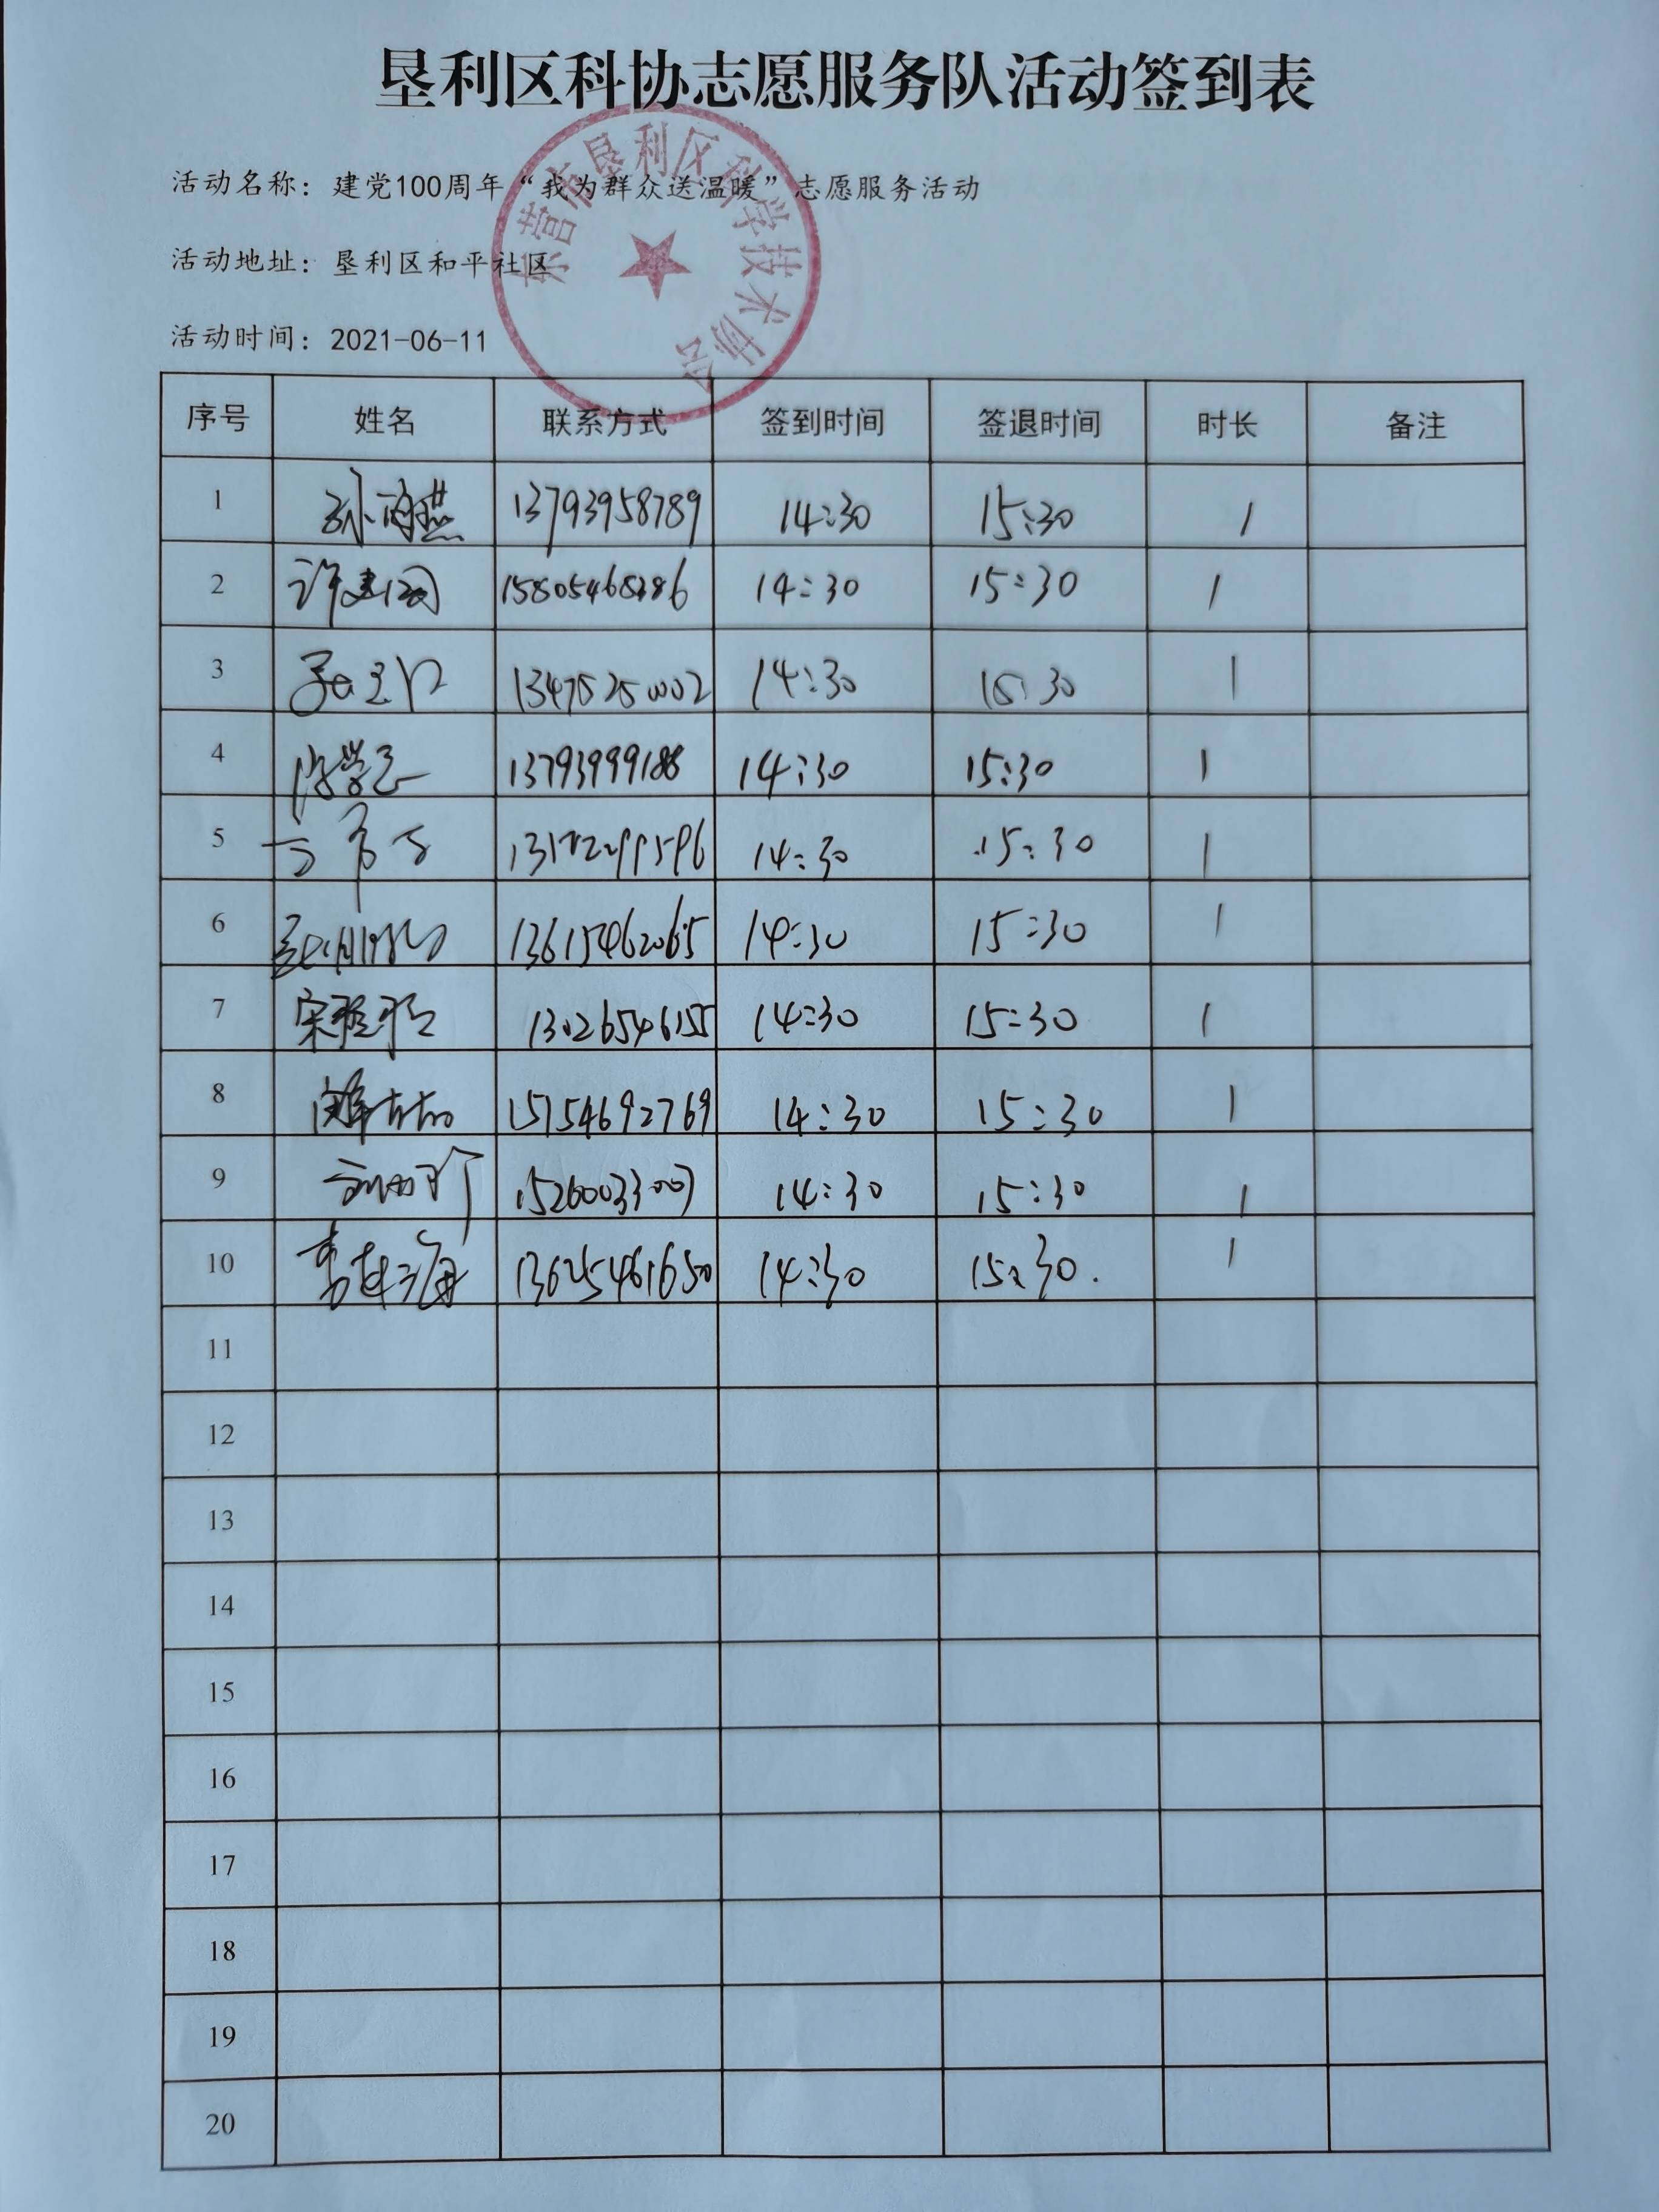 垦利区科协志愿服务队活动签到表
东营市垦利区科学技术协会
活动名称：建党100周年“我为群众送温暖”志愿服务活动
活动地址：垦利区和平社区
活动时间：2021-06-11
序号 姓名 联系方式 签到时间 签退时间 时长 备注
1 13793958789 14:30 15:30 1
2 14:30 15:30 1
3 14:30 15:30 1
4 13793999188 14:30 15:30 1
5 14:30 15:30 1
6 13615462065 14:30 15:30 1
7 14:30 15:30 1
8 15154692769 14:30 15:30 1
9 14:30 15:30 1
10 13625461650 14:30 15:30. 1
11
12
13
14
15
16
17
18
19
20